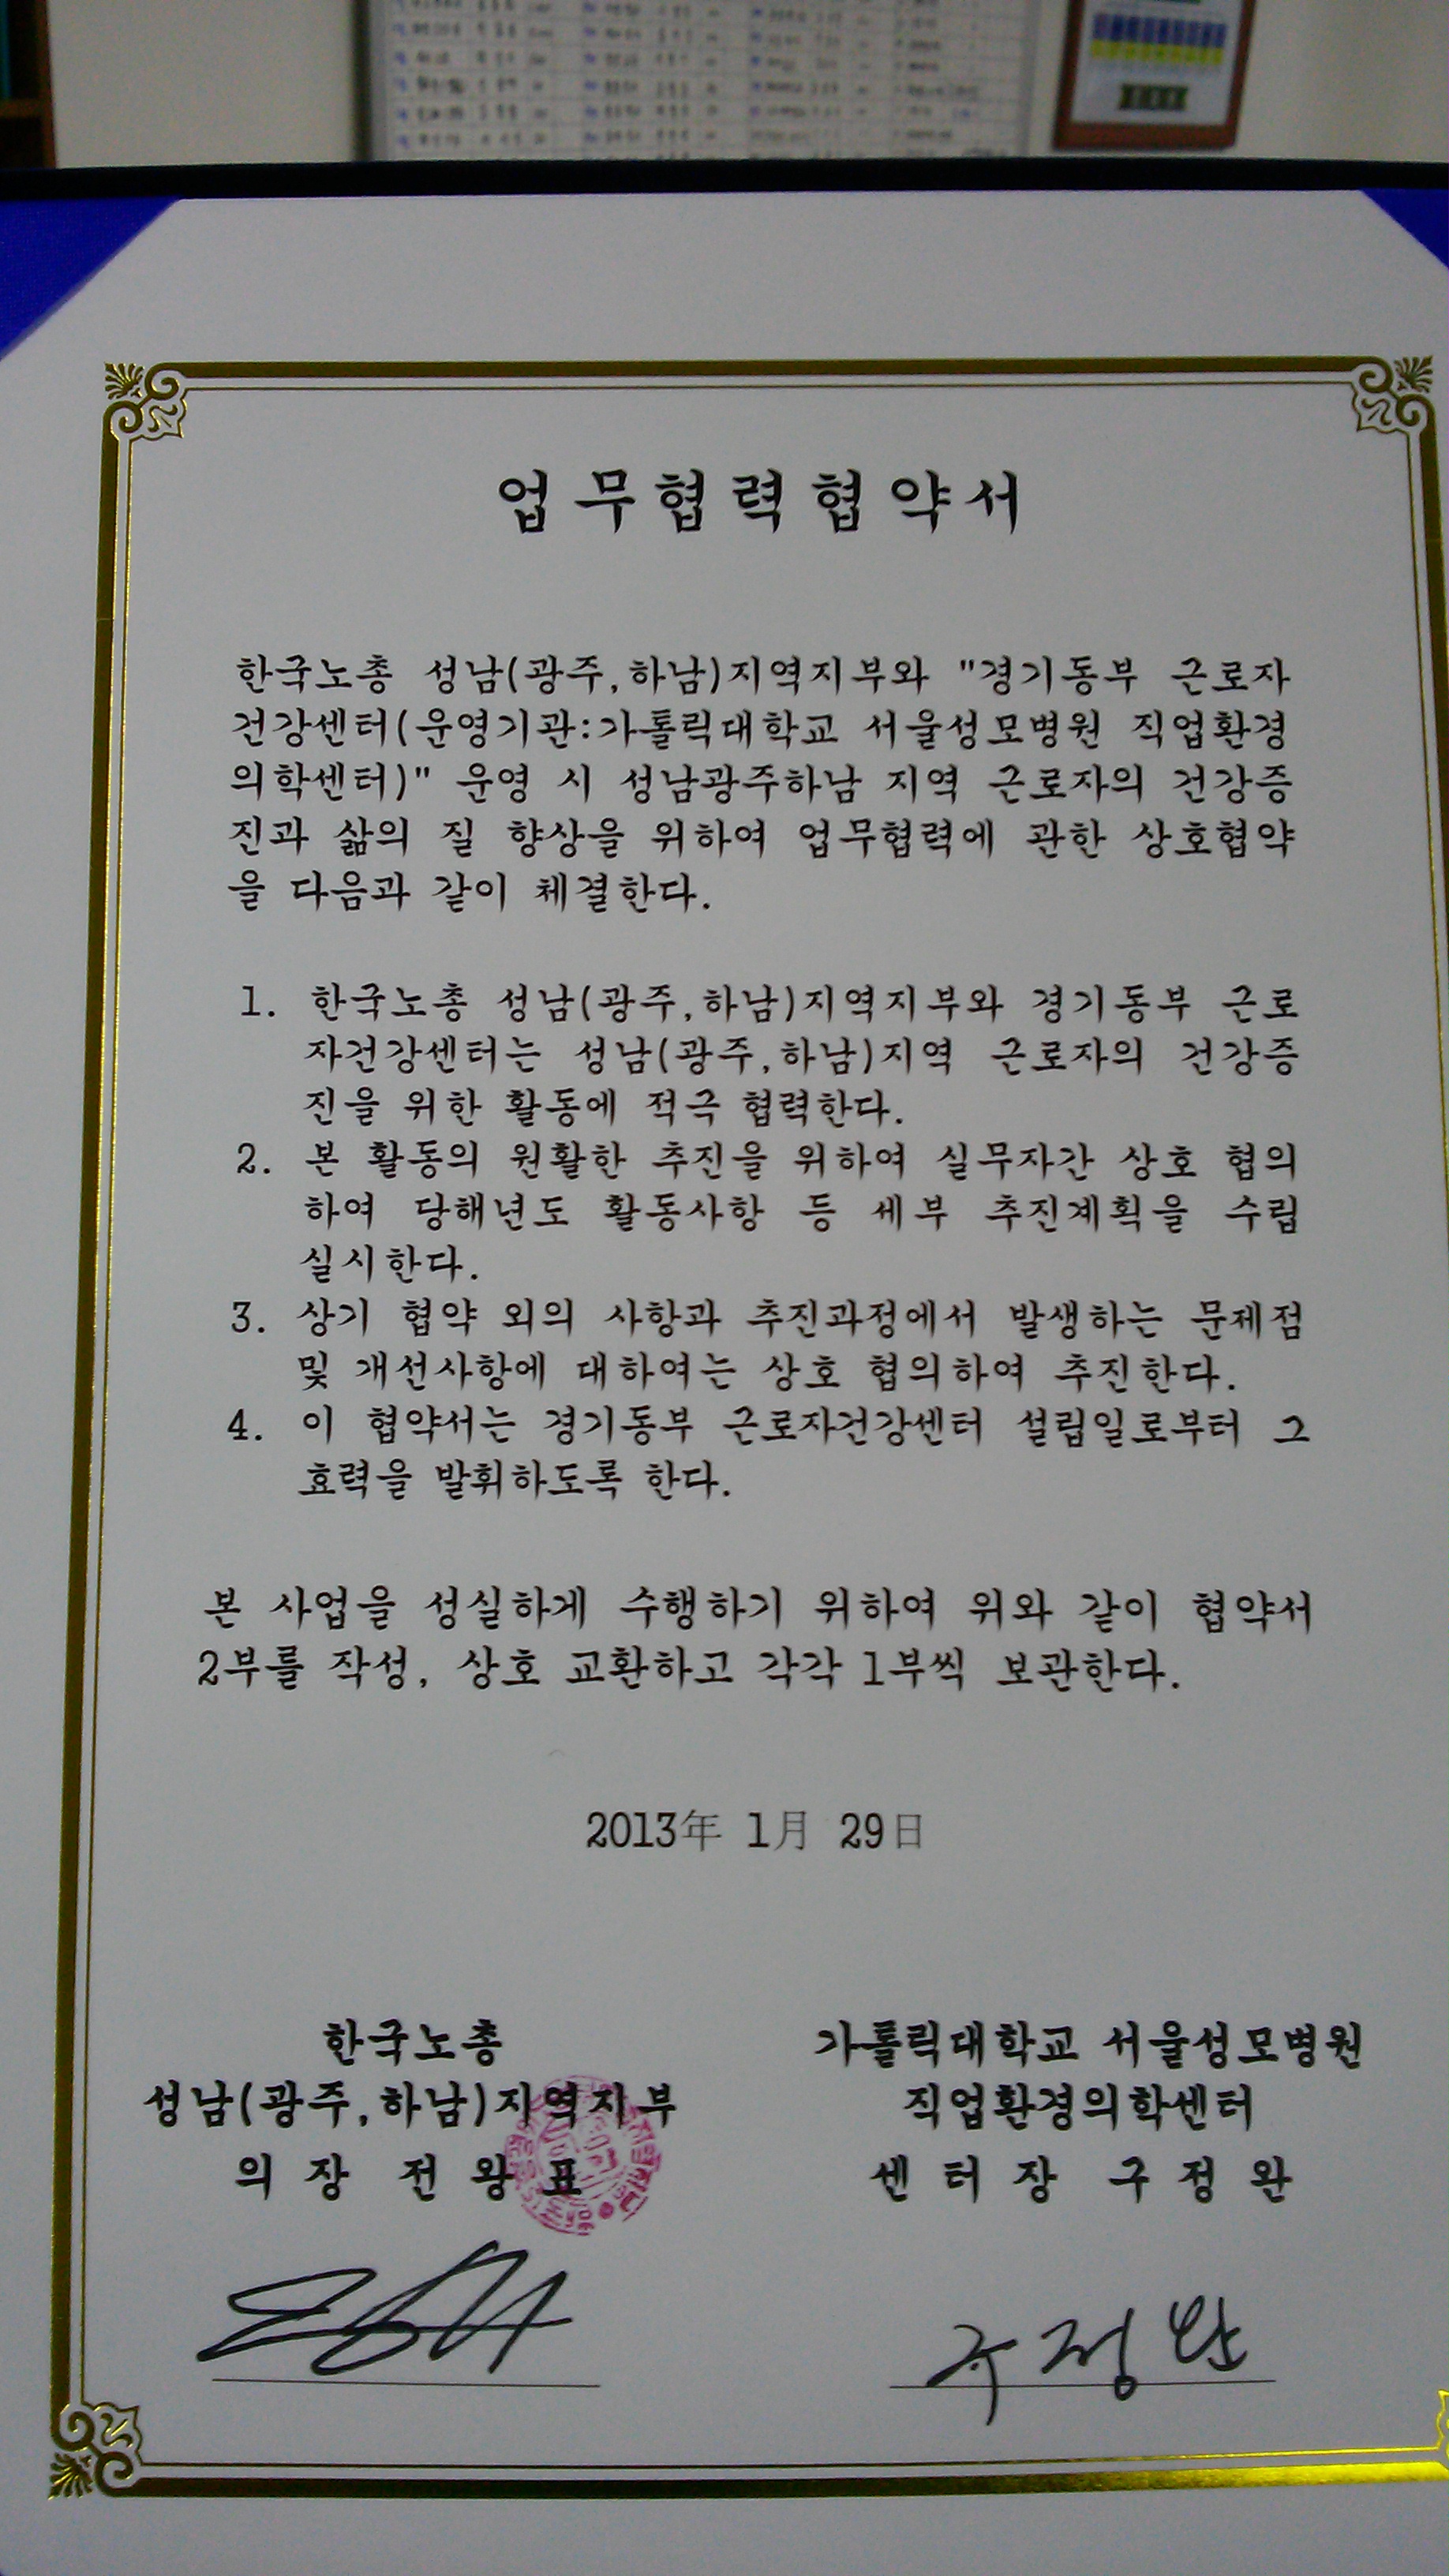 업무협력협약서
한국노총 성남(광주,하남)지역지부와 "경기동부 근로자
건강센터(운영기관:가톨릭대학교 서울성모병원 직업환경
의학센터)" 운영 시 성남광주하남 지역 근로자의 건강증
진과 삶의 질 향상을 위하여 업무협력에 관한 상호협약
을 다음과 같이 체결한다.
1. 한국노총 성남(광주,하남)지역지부와 경기동부 근로
자건강센터는 성남(광주,하남)지역 근로자의 건강증
진을 위한 활동에 적극 협력한다.
2. 본 활동의 원활한 추진을 위하여 실무자간 상호 협의
하여 당해년도 활동사항 등 세부 추진계획을 수립
실시한다.
3. 상기 협약 외의 사항과 추진과정에서 발생하는 문제점
및 개선사항에 대하여는 상호 협의하여 추진한다.
4. 이 협약서는 경기동부 근로자건강센터 설립일로부터 그
효력을 발휘하도록 한다.
본 사업을 성실하게 수행하기 위하여 위와 같이 협약서
2부를 작성, 상호 교환하고 각각 1부씩 보관한다.
2013年 1月 29日
한국노총
성남(광주,하남)지역지부
의 장 전 왕 표
가톨릭대학교 서울성모병원
직업환경의학센터
센 터 장 구 정 완
구정완